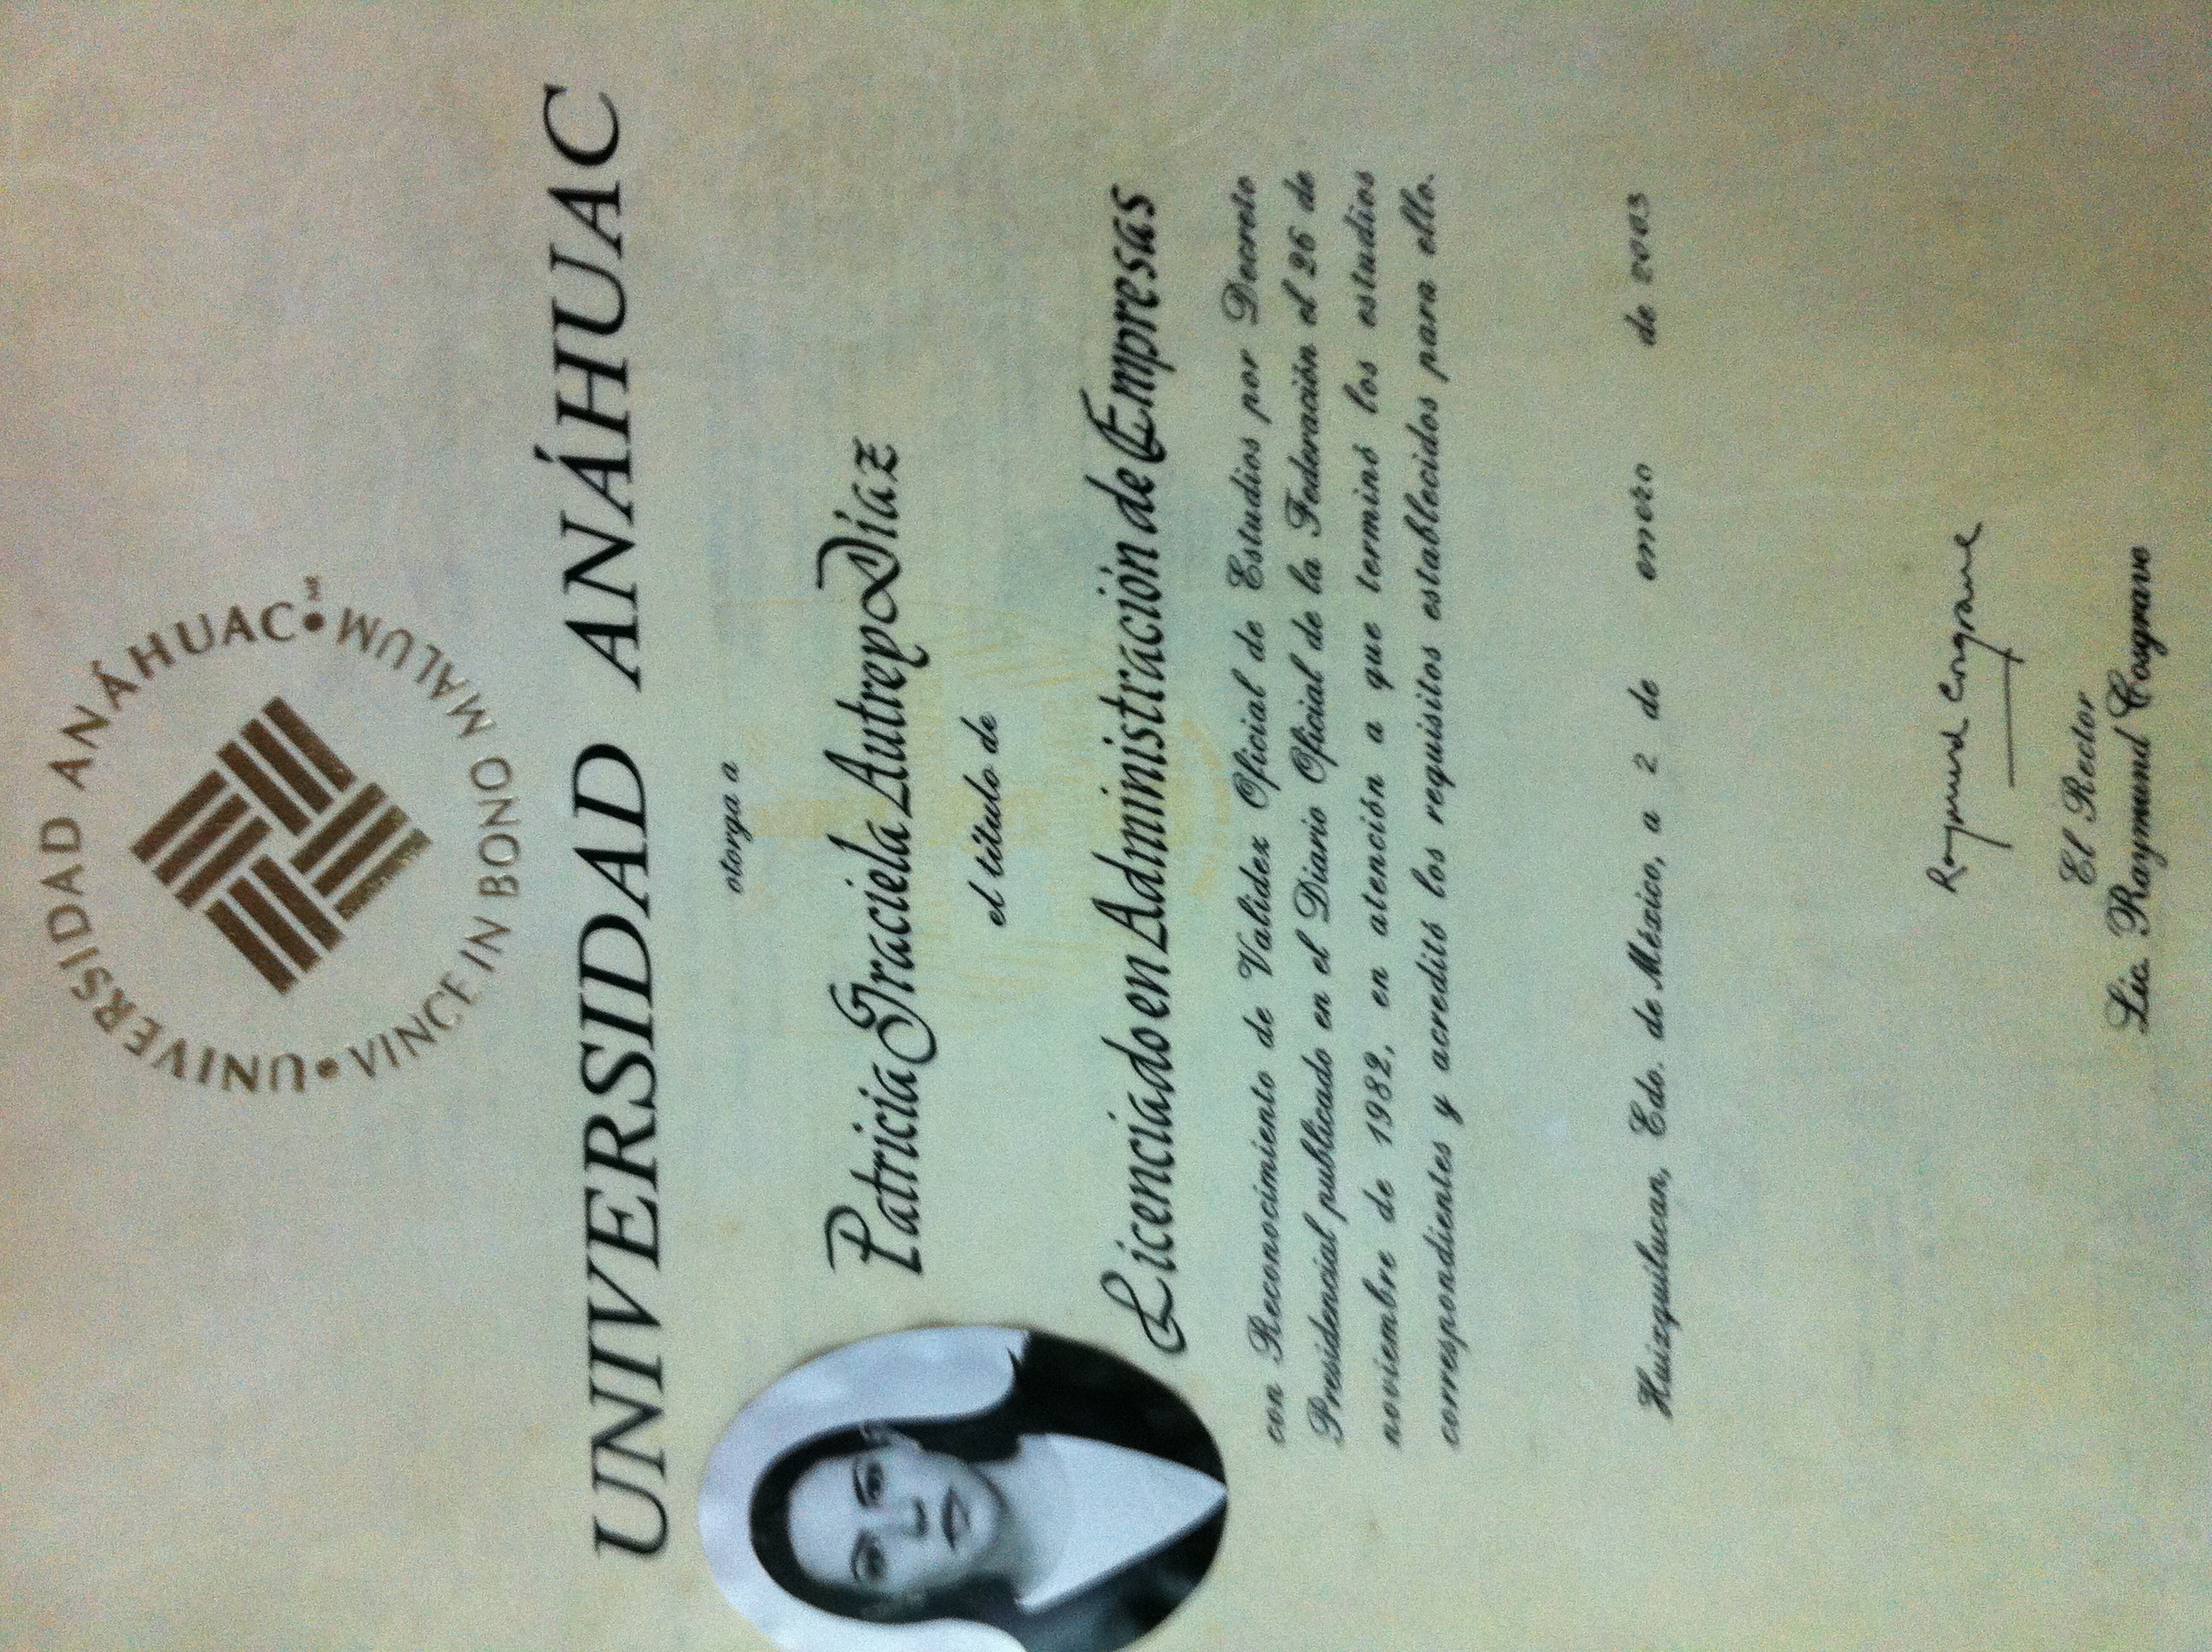 UNIVERSIDAD ANÁHUAC
MR
VINCE IN BONO MALUM
UNIVERSIDAD ANÁHUAC
otorga a
Patricia Graciela Autrey Díaz
el título de
Licenciado en Administración de Empresas
con Reconocimiento de Validez Oficial de Estudios por Decreto
Presidencial publicado en el Diario Oficial de la Federación el 26 de
noviembre de 1982, en atención a que terminó los estudios
correspondientes y acreditó los requisitos establecidos para ello.
Huixquilucan, Edo. de México, a 2 de enero de 2003
Raymund Cosgrave
El Rector
Lic. Raymund Cosgrave